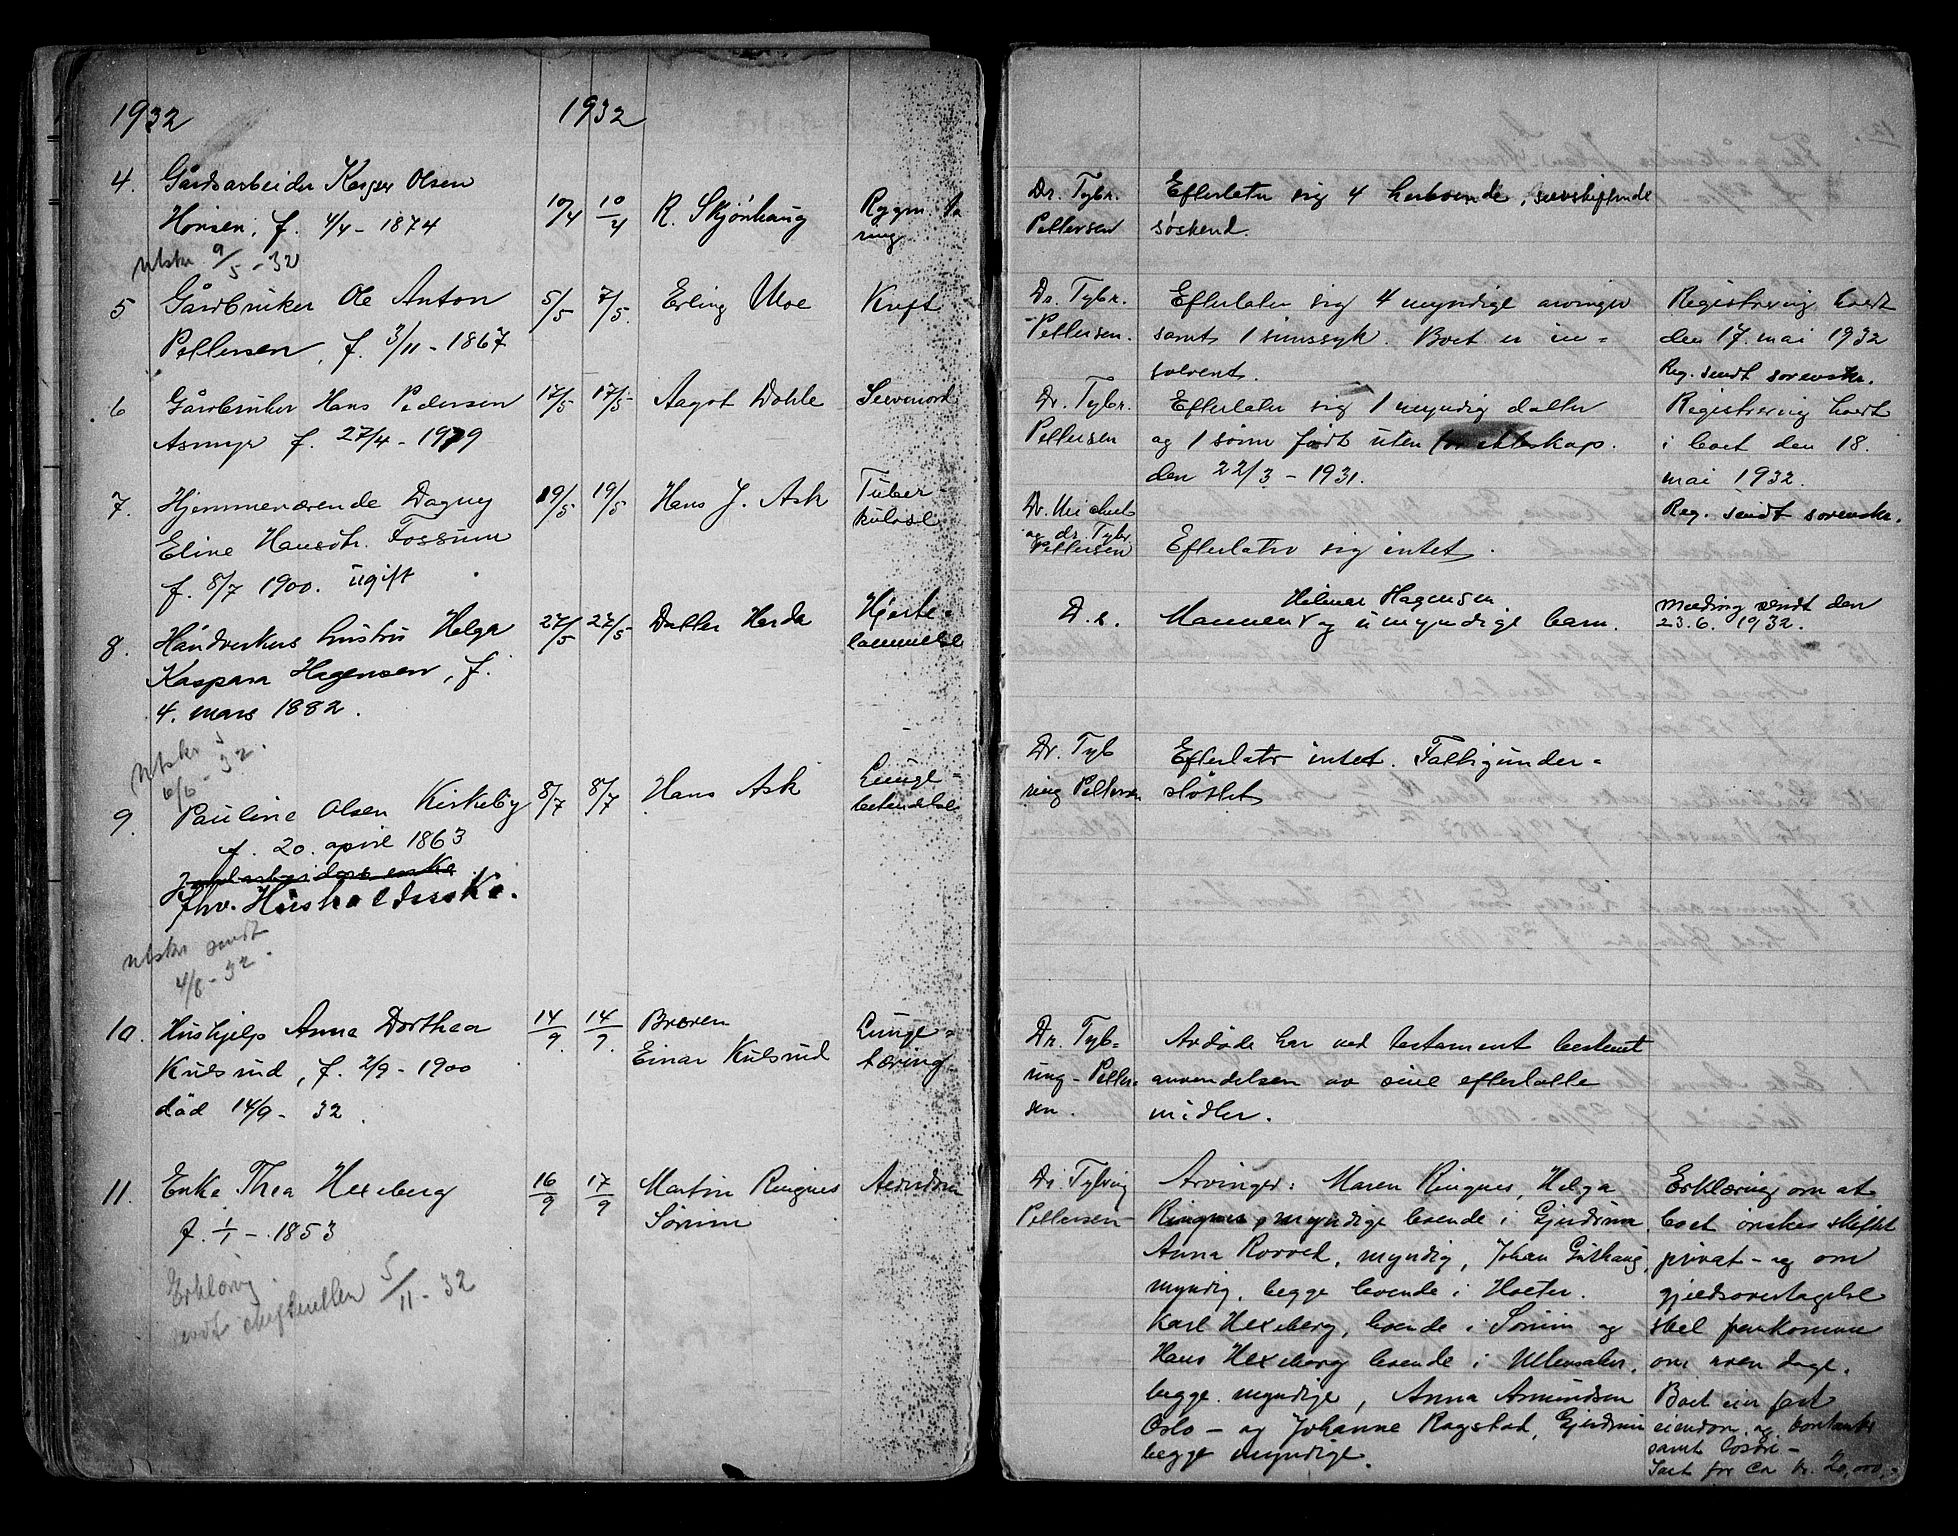 1932
1932
4. Gårdsarbeider Kasper Olsen
Hønsen, f. 4/4 - 1874
10/4 10/4 R. Skjønhaug
Rygm. tæ
ring
Utskr 9/5 - 32
5 Gårdbruker Ole Anton
Pettersen, f. 3/11 - 1867
5/5 7/5. Erling Moe Kreft
6 Gårdbruker Hans Pedersen
Asmyr f. 27/4 - 1979
17/5 17/5 Aagot Dahle Selvmord
7. Hjemmeværende Dagny
Eline Hansdtr. Fossum
f. 8/7 1900. ugift
19/5 19/5 Hans J. Ask
Tuber-
kulose
8. Håndverkers hustru Helga
Kaspara Hagensen, f.
4. mars 1882.
27/5 27/5 Datter Herda
Hjerte-
lammelse
Utskr
6/6 - 32.
9. Pauline Olsen Kirkeby
f. 20. april 1863
fhv. Husholderske.
8/7 8/7 Hans Ask
Lunge-
betendelse
Utskr sendt
4/8 - 32.
10. Hushjelp Anna Dorthea
Kulsrud, f. 2/9 - 1900
død 14/9 - 32.
14/9. 14/9. Broren
Einar Kulsrud
Lunge-
tæring
11. Enke Thea Hexeberg
f. 1/1 - 1853
16/9 17/9 Martin Ringnes
Sørum
Erklæring
sendt skifteretten 5/11 - 32
Dr. Tybr.
Pettersen
Efterlater sig 4 selvskiftende
søskend.
Dr. Tybr.
-Pettersen.
Efterlater sig 4 myndige arvinger
samt 1 sinnssyk. Boet er in-
solvent.
Registrering holdt
den 17. mai 1932
Reg. sendt sorenskr.
Dr. Tybr.
Pettersen
Efterlater sig 1 myndig datter
og 1 sønn født uten for ekteskap.
den 22/3 - 1931.
Registrering holdt
i boet den 18.
mai 1932.
Reg. sendt sorenskr.
Dr. Michel
og dr. Tybr
Pettersen
Efterlater sig intet.
D. s.
Hilmar Hagensen
Mannen V og umyndige barn.
Melding sendt den
23.6. 1932.
Dr. Tyb
ring Pettersen
Efterlater intet. Fattigunder-
støttet
Dr. Tyb-
ring - Petter-
sen.
Avdøde har ved testament bestemt
anvendelsen av sine efterlatte
midler.
Dr. Tybring
Pettersen
Arvinger: Maren Ringnes, Helga
Ringnes, myndige boende i Gjerdrum
Anna Rovved, myndig, Johan Guthaug,
myndig, begge boende i Holter.
Karl Hexeberg, boende i Sørum og
Hans Hexeberg boende i Ullensaker.
begge myndige, Anna Amundsen
Oslo - og Johanne Ragstad, Gjerdrum
begge myndige.
Erklæring om at
boet ønskes skiftet
privat - og om
gjeldsovertagelse
skal frenkomme
om noen dage.
Boet eier fast
eiendom og kontanter
samt løsøre -
Tart for ca kr. 20,000,-